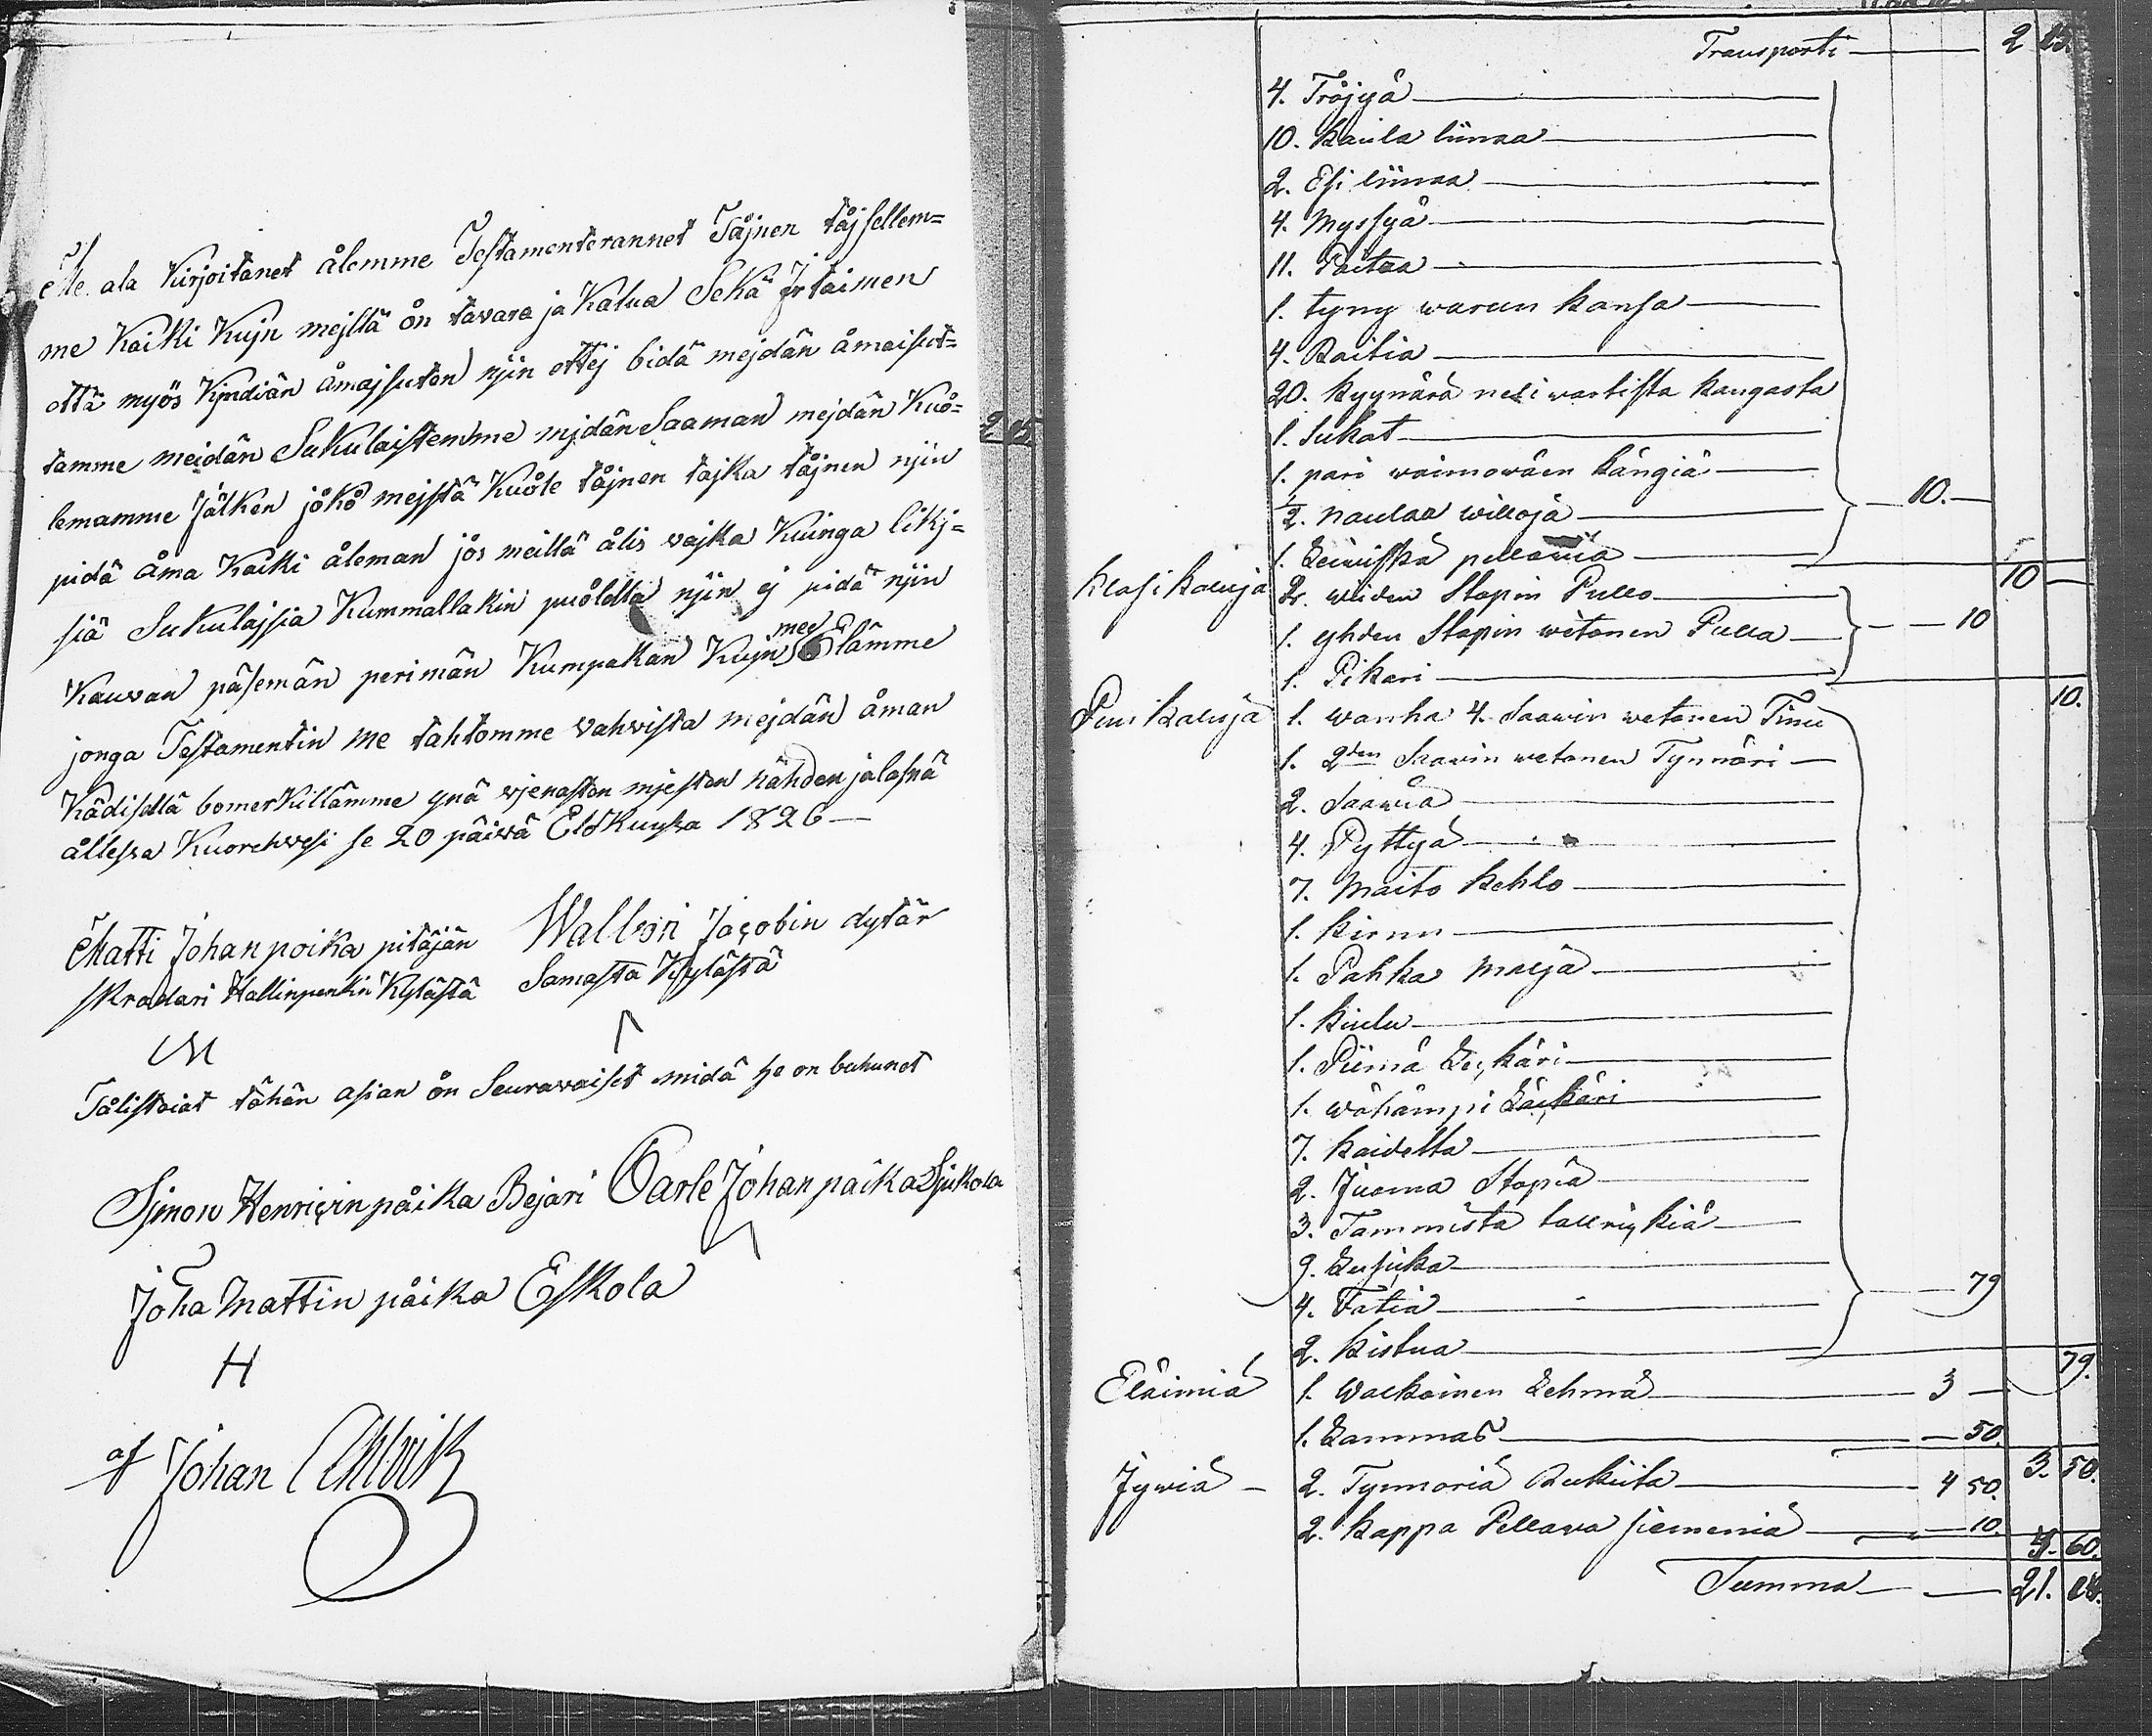 Me ala Kirjoitanet ålemme Testamenterannet Tåjnen tåjsellem=
me Kaiki Kujn mejllä ön tavara ja Kalua Sekä Jrtaimen
ottä myös Kjndiän åmajsuten njin ettej bidä mejdän åmaisut=
tamme meidän Sukulaistemme mjdän Saaman mejdän Kuå=
lemamme Jälken jökö mejstä Kuåle tåjnen tajka tåjnen njin
pidä åma Kaiki åleman jos meillä ålis vajka Kuinga likj=
siä Sukulajsia Kummallakin puålella njin ej pidä njin
Kauvan päsemän perimän Kumpakan Kujn me Elämme
jonga Testamentin me tahtomme vahvista mejdän åman
Kädisellä bomerkillämme ynä vjerasten mjesten nähden jaläsnä
ållessa Kuorehvesi se 20 päivä Elokuusa 1826
Matti Johanpoika pitäjän
skradari Hallinpenkin Kylästä
Walbori Jacobin dytär
Samasta Kylästä
Tålistajat tähän asian ön Seuravaiset midä he on buhunet
Simon Henricin påika Bejari Carle Johan paika Sjukola
Joha Mattin påika Eskola
H
af Johan Ahlvik
2 25.
Transporti 2 25.
4. Tröjyä
10. Kaula liinaa
2. Esi liinaa
4. Myssyä
11. Paitaa
1. tyny warun kansa
4. Raitia
20. kyynärä neli wartista kangasta
1. Sukat
1. pari waimowäen kängiä
2. naulaa willoja 10.
1. Leiwiskä pellavia
10
Klasi kaluja 2. widen Stopin Pullo
1. yhden Stopin wetonen Pullo 10
1. Pikari
10.
Puu kaluja 1. wanha 4. Saawin wetonen Tinu
1. 2den Saawin wetonen Tynnöri
2. Saawia
4. Pyttyä
7. Maito kehlo
1. Kirnu
1. Pahka malja
1. Kiulu
1. Piimä Leikäri
1. wähämpi Leikäri
7. Kaidetta
2. Juoma Stopia
3. Tammista tallrickiä
9. Lusicka
4. Fatia 79
2. Kistua
79.
Eläimiä 1. Walkoinen Lehmä 3
1. Lammas 50.
3. 50.
Jywiä 2. Tynnöriä Rukiita 4 50.
2. Kappa Pellava siemeniä 10.
4. 60.
Summa 21. 24.